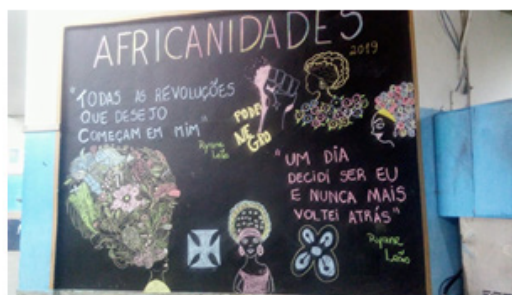 AFRICANIDADES
2019
"TODAS AS REVOLUÇÕES
QUE DESEJO
COMEÇAM EM MIM"
Ryane
Leão
PODER
NE
GRO
"UM DIA
DECIDI SER EU
E NUNCA MAIS
VOLTEI ATRÁS"
Ryane
Leão